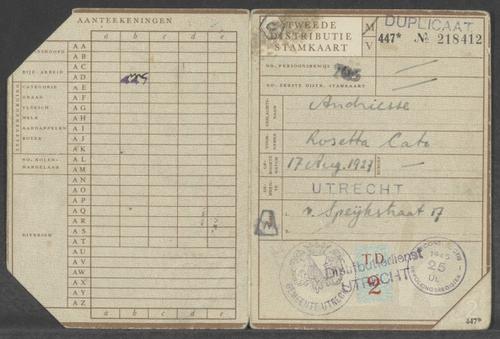 AANTEEKENINGEN
a b c d e
AA
AB
BIJZ. ARBEID AC
AD
CATEGORIE AE
GRAAD AF
VLEESCH AG
MELK AH
AARDAPPELEN AI
BOTER AJ
ZELFVERZORGER
AK
NO. KOLEN- AL
HANDELAAR AM
AN
AO
AP
AQ
AR
DIVERSEN AS
AT
AU
AV
AW
AX
AY
AZ
TWEEDE
DISTRIBUTIE
STAMKAART
M
V
DUPLICAAT
447* No 218412
NO. PERSOONSBEWIJS
NO. EERSTE DISTR. STAMKAART
Andriesse
Rosetta Cato
17 Aug. 1927
UTRECHT
v. Speijkstraat 17
GEMEENTE UTRECHT
TD
2
Distributiedienst
UTRECHT
1945
25
447*